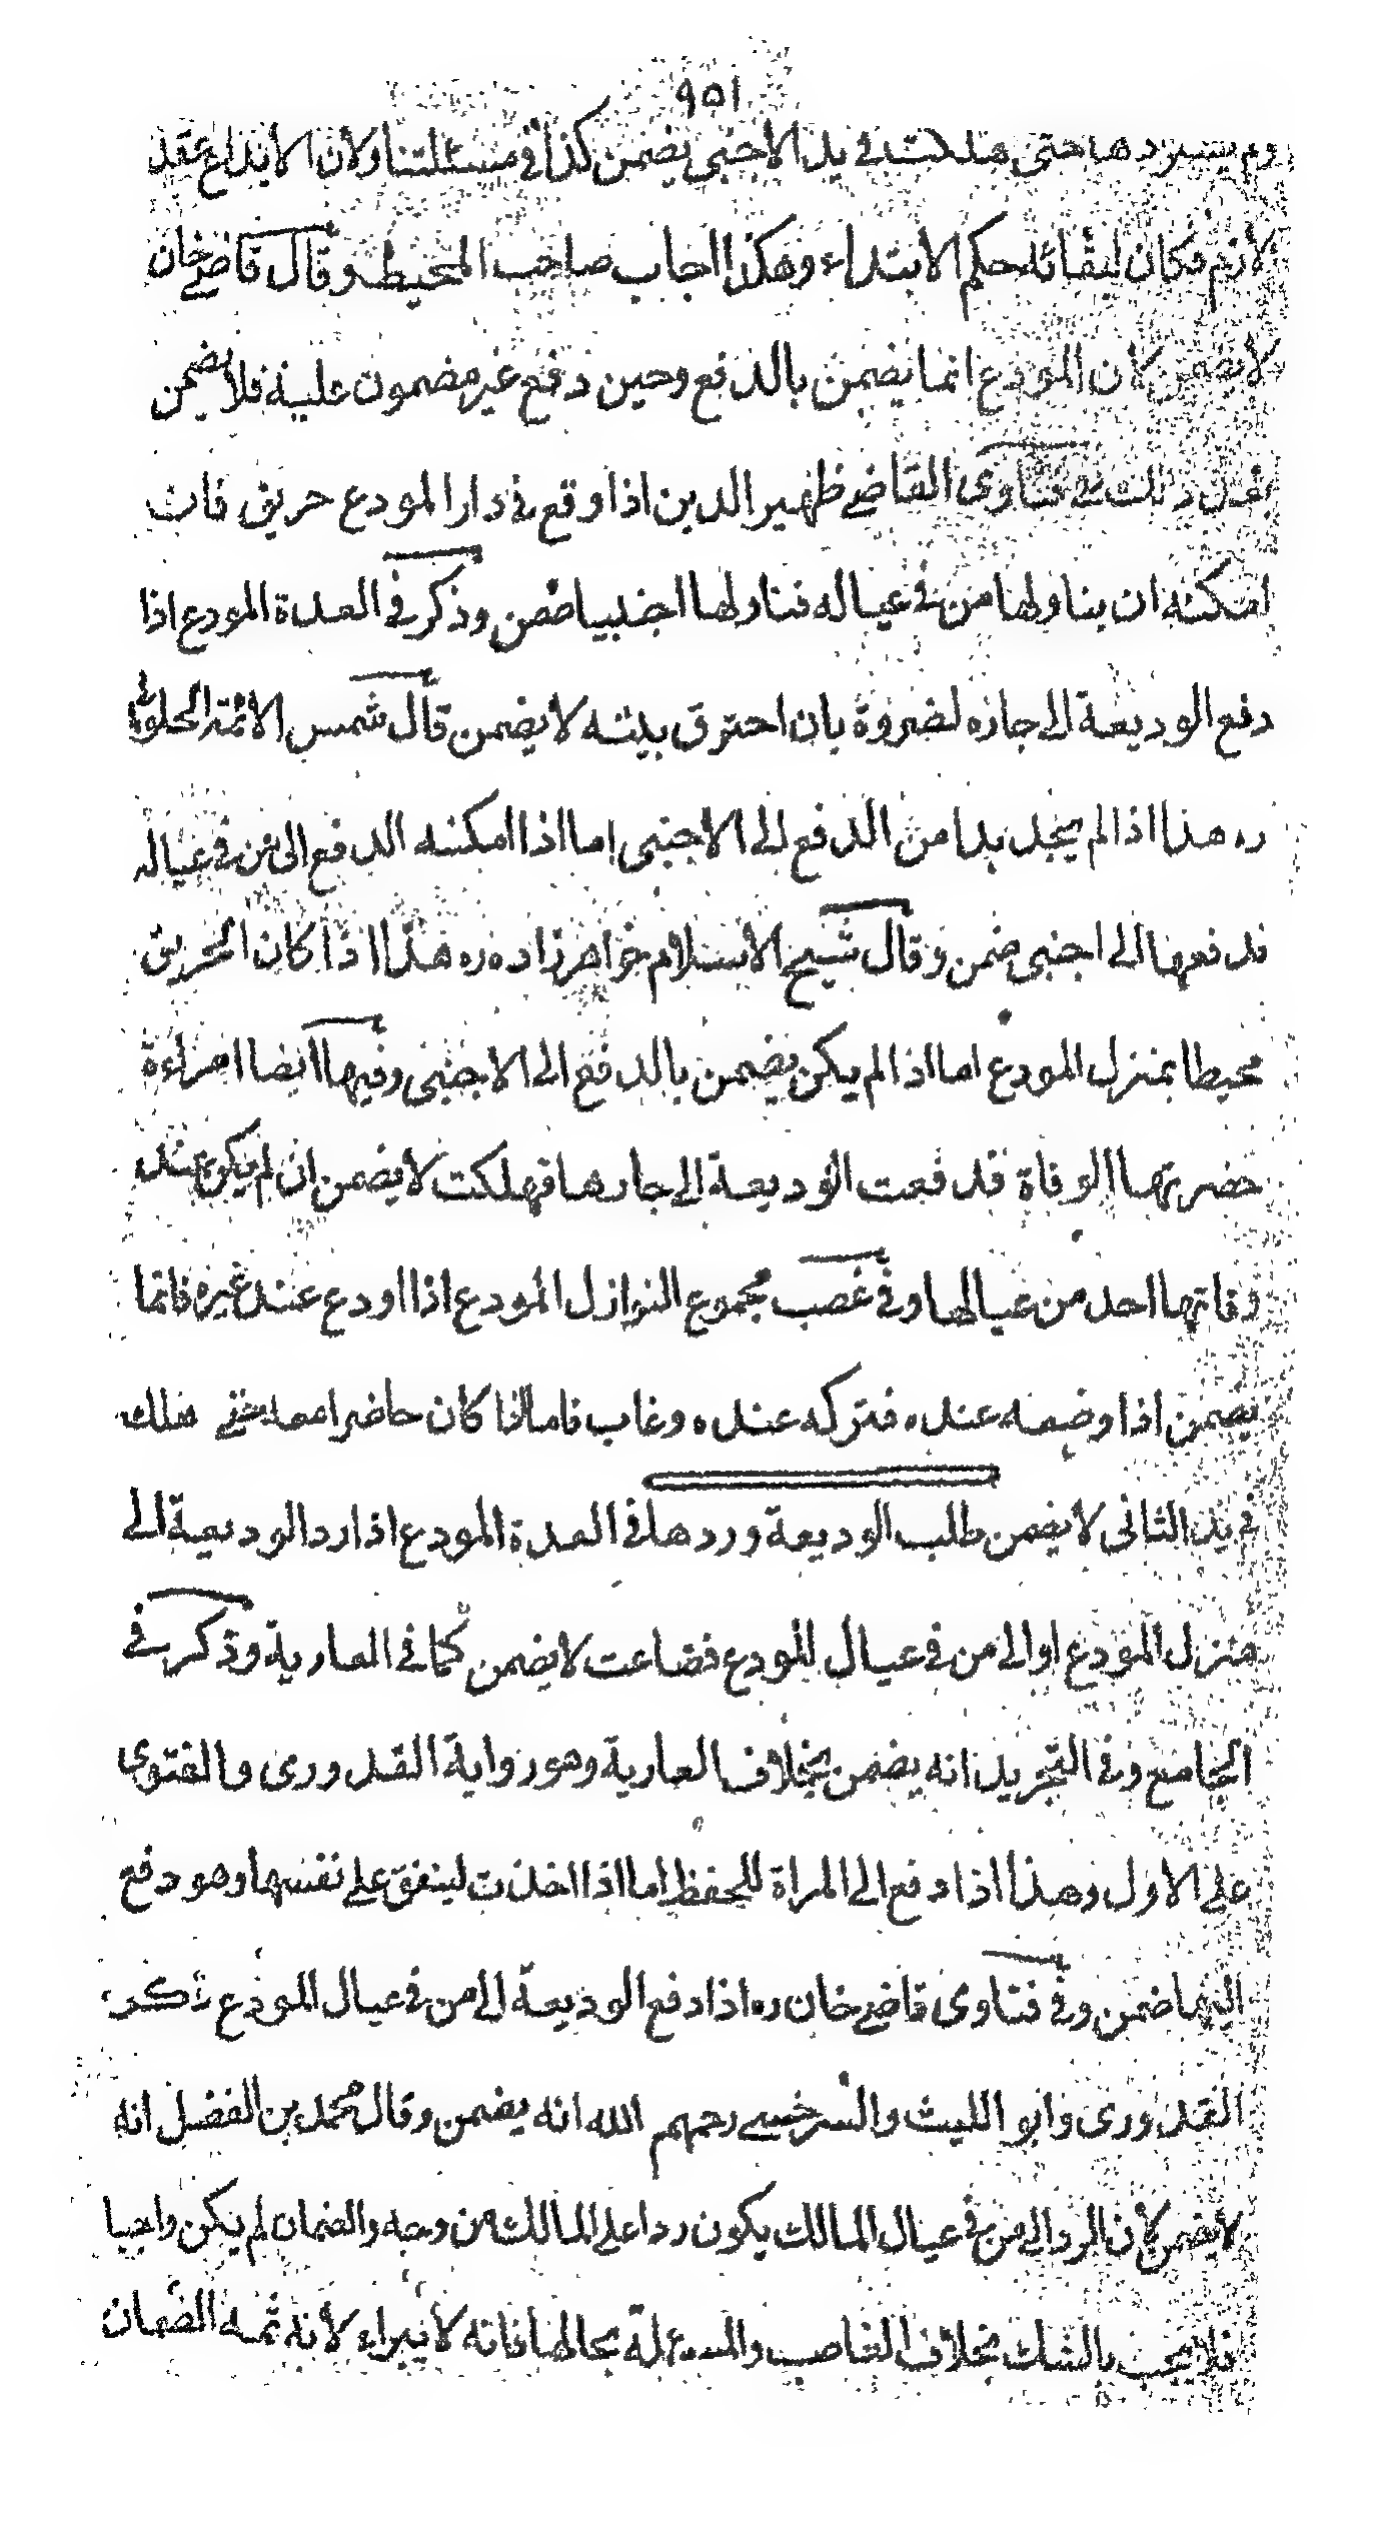 ٩٥١
ولم يستردها حتى هلكت في يد الاجنبى يضمن كذا في مسئلتنا ولان الايداع عقد
لازم فكان لبقائه حكم الابتداء وهكذا اجاب صاحب المحيط وقال قاضي خان
لا يضمن لان المودع انما يضمن بالدفع وحين دفع غير مضمون عليه فلا يضمن
بعد ذلك في فتاوى القاضي ظهير الدين اذا وقع في دار المودع حريق فان
امكنه ان يناولها من في عياله فناولها اجنبيا ضمن وذكر في العدة المودع اذا
دفع الوديعة الى جاره لضروة بان احترق بيته لا يضمن قال شمس الائمة الحلوائى
ره هذا اذا لم يجد بدا من الدفع الى الاجنبى اما اذا امكنه الدفع الى من في عياله
فدفعها الى اجنبى ضمن وقال شيخ الاسلام خواهر زاده ره هذا اذا كان الحريق
محيطا بمنزل المودع اما اذا لم يكن يضمن بالدفع الى الاجنبى وفيها ايضا امراءة
حضرتها الوفاة فدفعت الوديعة الى جارها فهلكت لا يضمن ان لم يكن عند
وفاتها احد من عيالها وفي غصب مجموع النوازل المودع اذا اودع عند غيره فانما
يضمن اذا وضعه عنده فتركه عنده وغاب فاما اذا كان حاضرا معه حتى هلك
في يد الثانى لا يضمن طلب الوديعة وردها في العدة المودع اذا رد الوديعة الى
منزل المودع او الى من في عيال المودع فضاعت لا يضمن كما في العارية وذكر في
الجامع وفي التجريد انه يضمن بخلاف العارية وهو رواية القدورى والفتوى
على الاول وهذا اذا دفع الى المراة للحفظ اما اذا اخذت لينفق على نفسها وهو دفع
اليها ضمن وفي فتاوى قاضي خان ره اذا دفع الوديعة الى من في عيال المودع ذكر
القدورى وابو الليث والسرخسي رحمهم الله انه يضمن وقال محمد بن الفضل انه
لا يضمن لان الرد الى من في عيال المالك يكون ردا على المالك من وجه والضمان لم يكن واجبا
فلا يجب بالشك بخلاف الغاصب والمسئلة بحالها فانه لا يبراء لانه ثمه الضمان